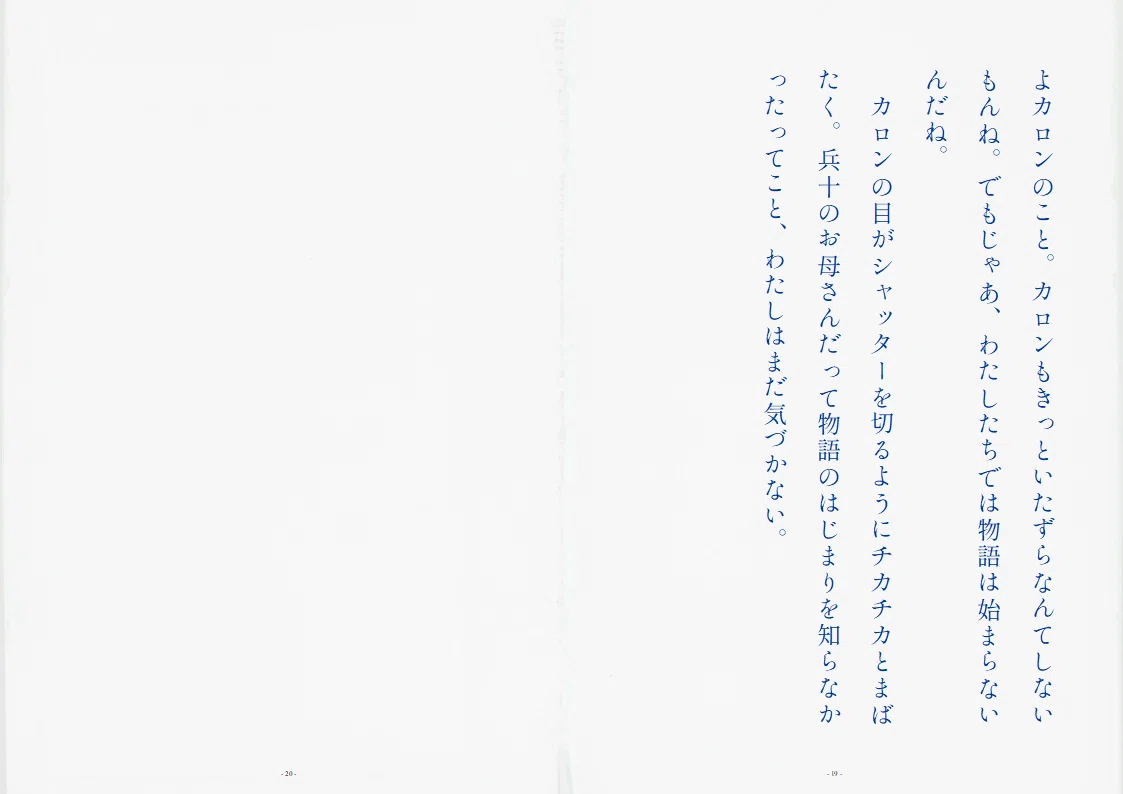 よカロンのこと。カロンもきっといたずらなんてしない
もんね。でもじゃあ、わたしたちでは物語は始まらない
んだね。
　カロンの目がシャッターを切るようにチカチカとまば
たく。兵十のお母さんだって物語のはじまりを知らなか
ったってこと、わたしはまだ気づかない。
- 19 -
- 20 -